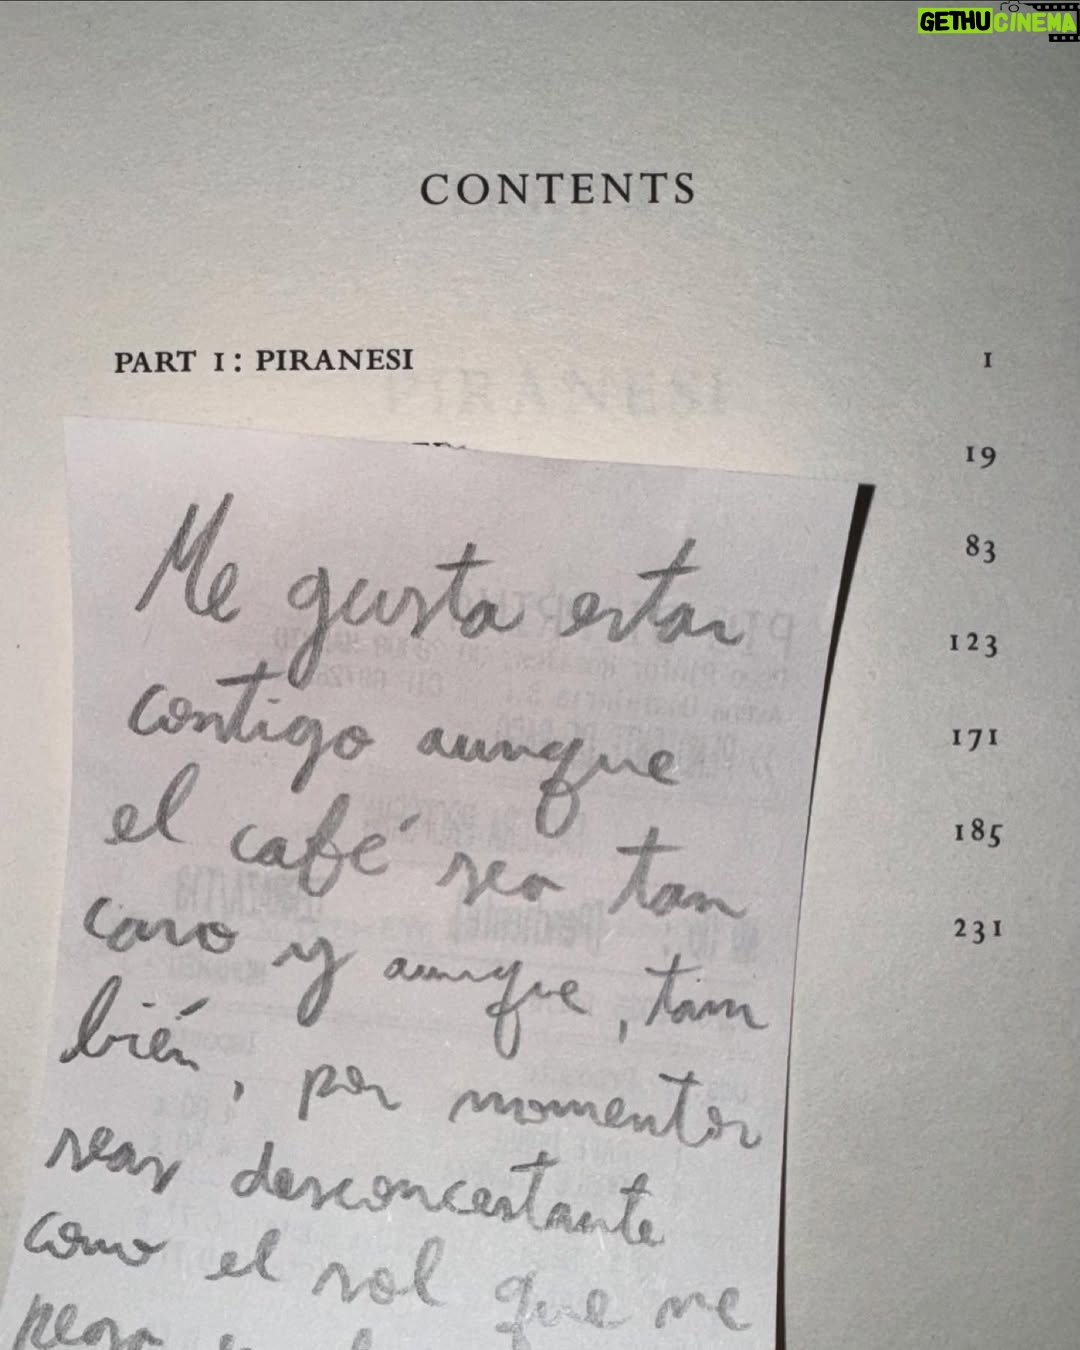 GETHUCINEMA
CONTENTS
PART I: PIRANESI 1
PIRANESI
19
83
123
171
185
231
Me gusta estar
contigo aunque
el café sea tan
caro y aunque, tam
bién, por momentos
seas desconcertante
como el sol que me
pega